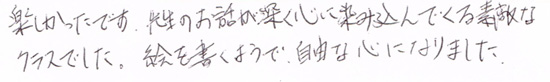 楽しかったです。先生のお話が深く心に染み込んでくる素敵な
クラスでした。絵を書くようで、自由な心になりました。